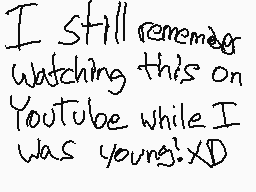 I still remember
watching this on
YouTube while I
was young! XD